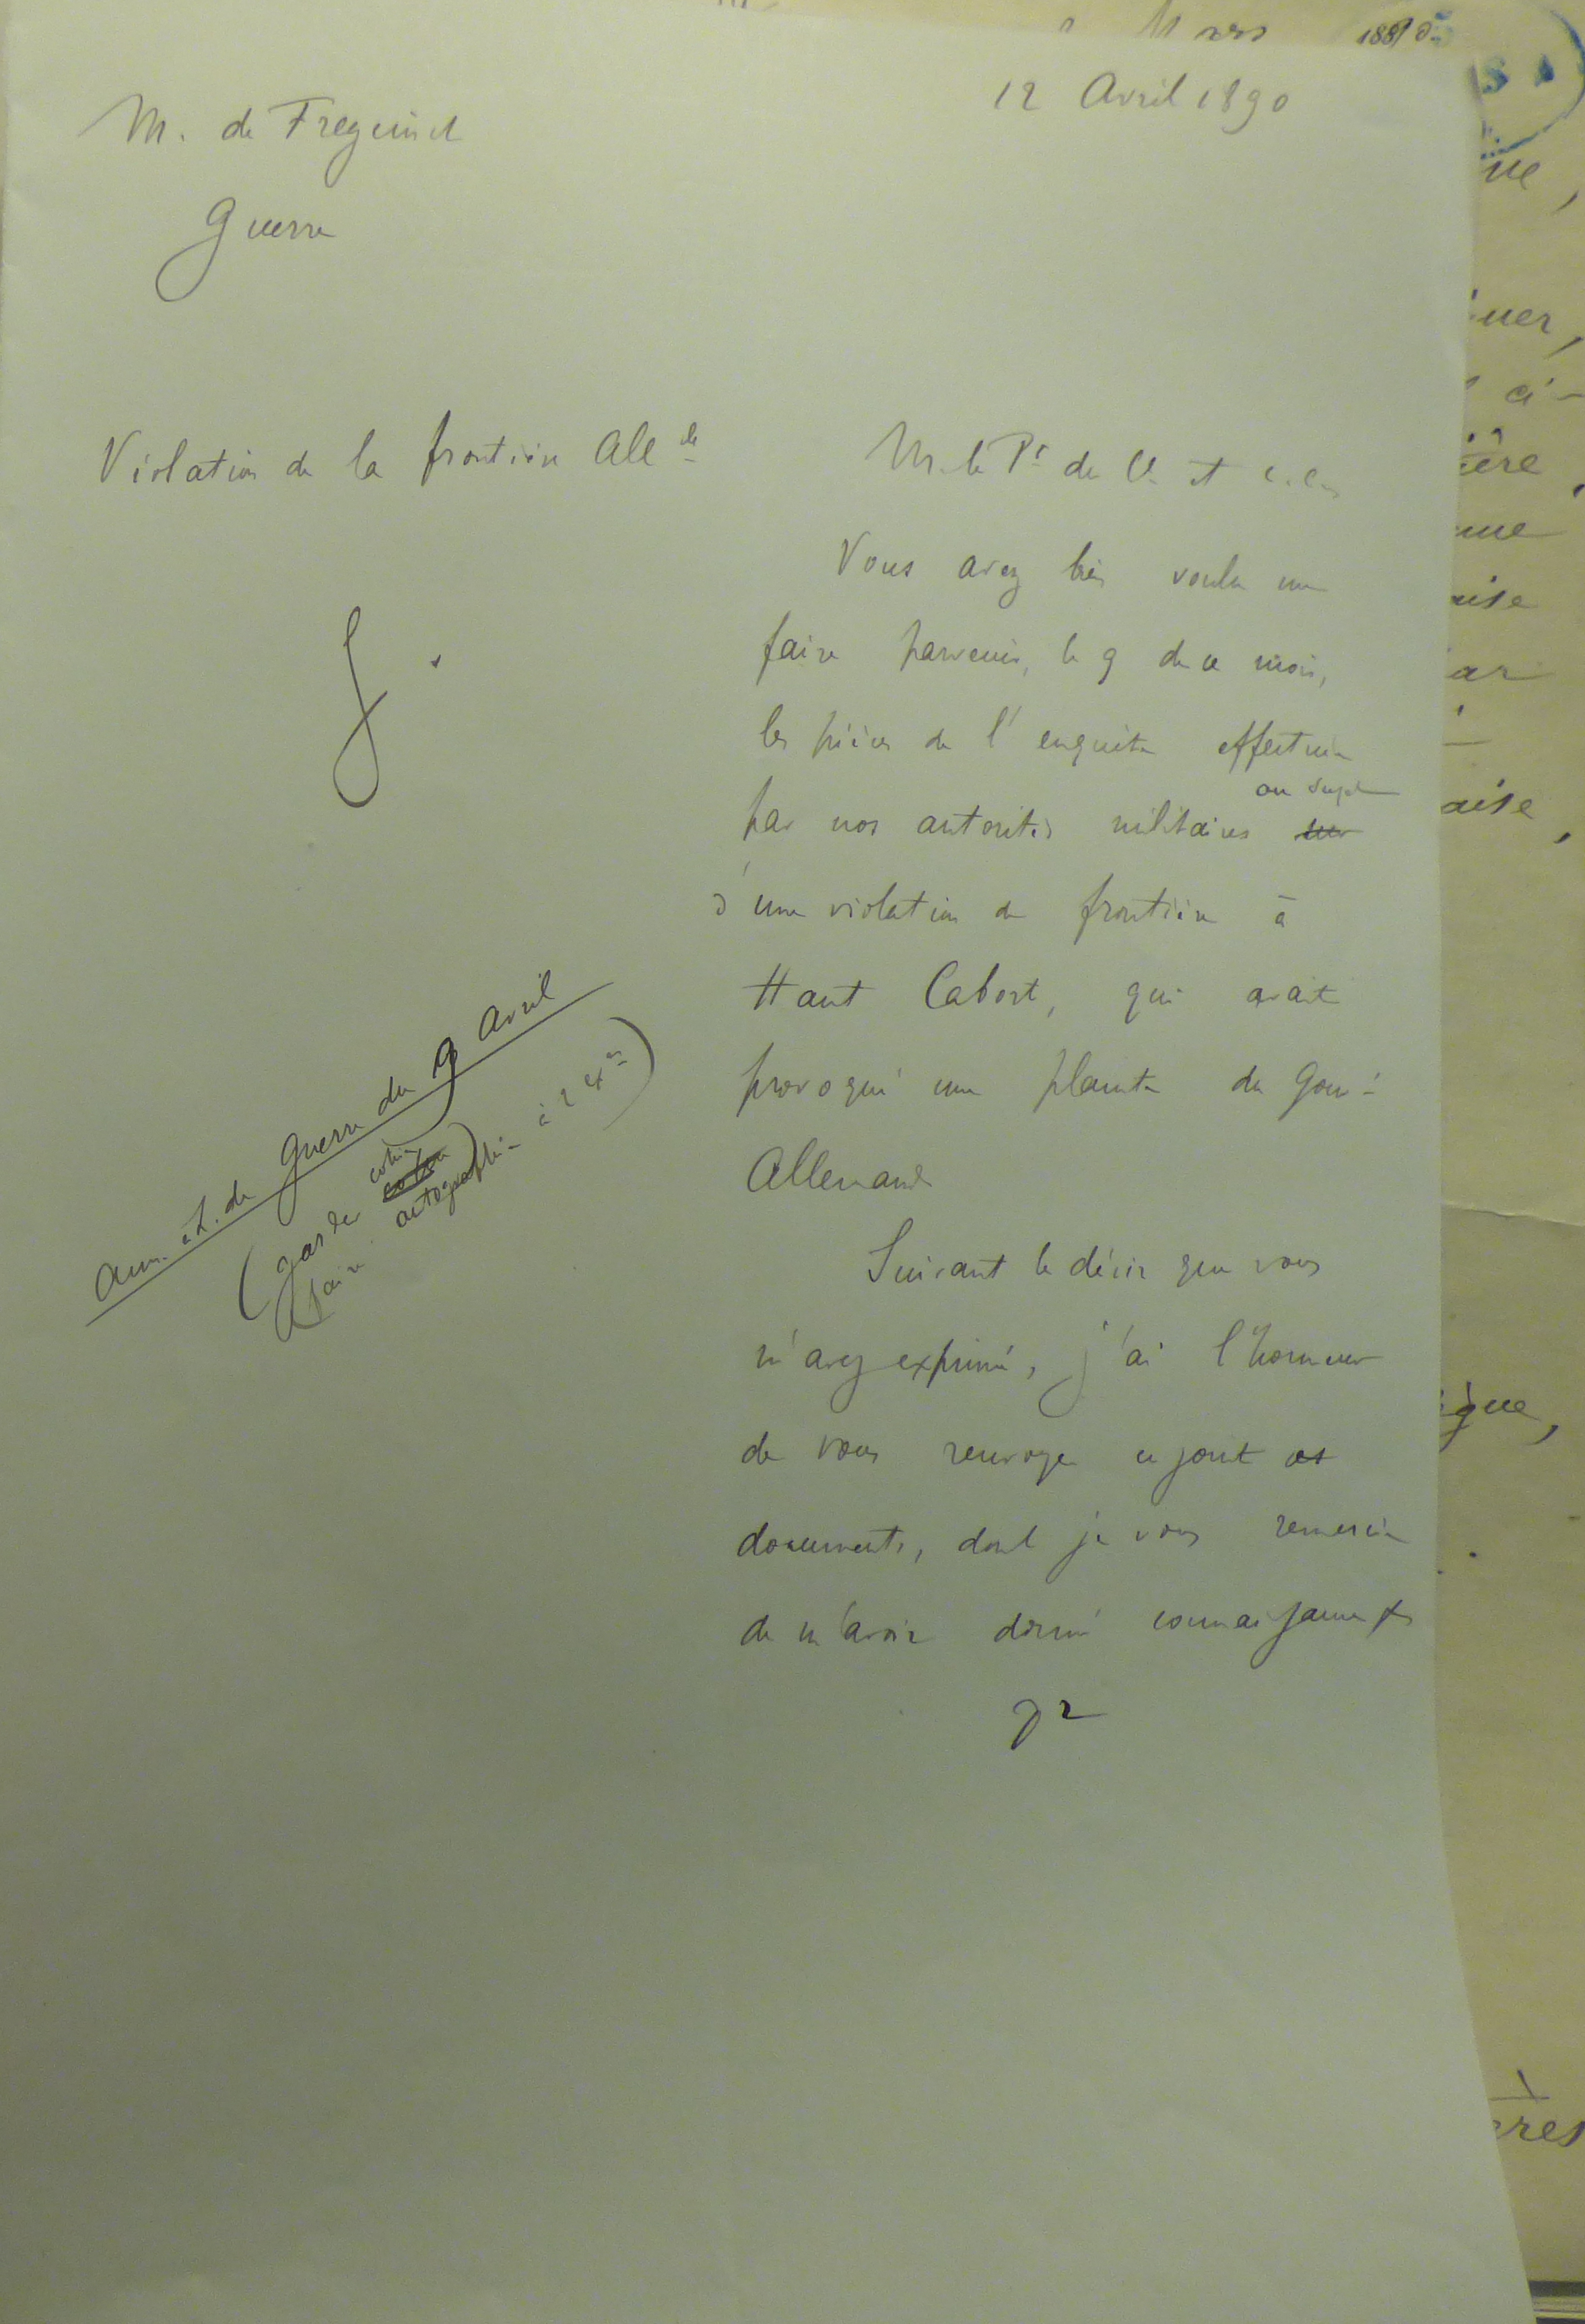 12 Avril 1890
M. de Freycinet
Guerre
Violation de la frontière Alle de
M. le Pt de Cl et c. c.
Vous avez bien voulu me
faire parvenir, le 9 de ce mois,
les pièces de l'enquête effectuée
au sujet
par nos autorités militaires sur
d'une violation de frontière à
Haut Cabort, qui avait
provoqué une plainte du Gouvt
Allemand
Suivant le désir que vous
m'avez exprimé, j'ai l'honneur
de vous renvoyer ci joint ces
documents, dont je vous remercie
de m'avoir donné connaissance
Ann. à L. de Guerre du 9 Avril
(garder copie
faire autographie à 2 exres)
Mars 1889
ue,
uer,
ière
une
aise
ar
aise,
ique,
ères